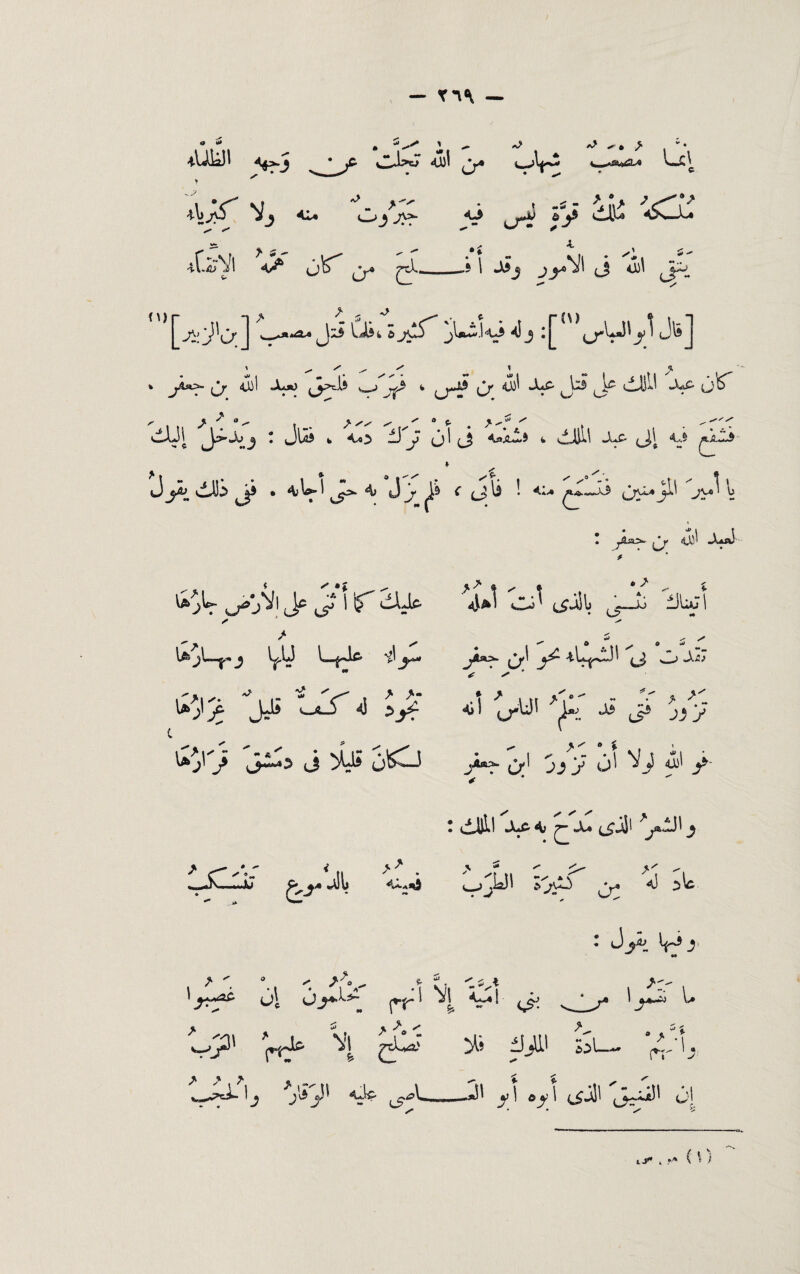 — ٢٦٩ —
إنما مُصعَبٌ شِهابٌ من الله تجلّت عن وَجهِه الظَّلْماءُ
مُلْكُهُ مُلْكُ قوّةٍ ليس فيه جَبَرُوتٌ منه ولا كِبْرياءُ
يَتَّقِي اللهَ في الأمور وقد أفـــلح من كان هَمَّهُ الاتّقاءُ
[قال أبو العباس]⁽¹⁾: وله فيه أشعارٌ كثيرة، فلمّا قتل مصعبُ [بن الزبير]⁽¹⁾
كان عبدُ الملك على قتل عبد الله بن قيس، فهَرَبَ فلحِق بعبد الله بن جعفر،
فشَفَعَ فيه إلى عبد الملك، فشفّعه في أن تركَ دمَهُ، فقال: ويَدْخُلُ إليكَ
يا أميرَ المؤمنين فتَسْمَعُ منه! فأبى، فلم يَزَلْ به حتى أجابه. ففي ذلك يقولُ
لعبد الله بن جعفر:
أتيناكَ نُثْنِي بالذى أنتَ أهلُهُ عليكَ كما أثْنى على الأرضِ جارُها
تَقَدَّتْ بىَ الشهباءُ نحوَ ابنِ جعفرٍ سَواءٌ عليها ليلُها ونهارُها
تَزُورُ فتًى قد يَعْلَمُ الناسُ أنه تجودُ له كفٌّ قليلٌ غِرارُها
فو اللهِ لولا أن تزورَ ابنَ جعفرٍ لكان قليلًا فى دمشقَ قَرارُها
والشعرُ الذى مَدَحَ به عبدَ الملك:
عادَ لهُ من كَثِيرةَ الطَّرَبُ فعينُهُ بالدموع تنسكبُ
وفيها يقول:
ما نَقَمُوا من بنى أُمَيّةَ إلّا أنهم يَحْلُمُون إن غضِبُوا
وأنّهمْ سادةُ الملوكِ فلا تَصلُحُ إلّا عليهمُ العَربُ
إن الفَنِيقَ الذى أبوه أبو العـــاصِى عليه الوَقارُ والحُجُبُ
(١) س.